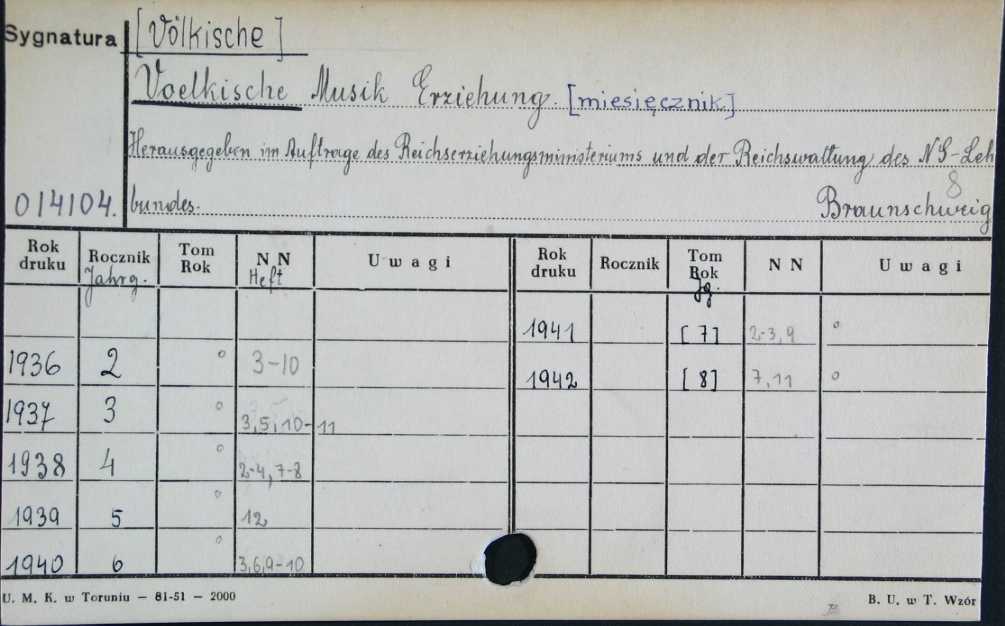 Sygnatura [Völkische]
Voelkische Musik Erziehung. [miesięcznik]
Herausgegeben im Auftrage des Reichserziehungsministeriums und der Reichswaltung des NS-Leh
8
014104. bundes. Braunschweig
Rok druku Rocznik Jahrg. Tom Rok NN Heft Uwagi Rok druku Rocznik Tom Rok Jg. NN Uwagi
1941 [7] 2-3,9 °
1936 2 ° 3-10
1942 [8] 7,11 °
1937 3 ° 3,5,10-11
1938 4 ° 2-4,7-8
1939 5 ° 12
1940 6 ° 3,6,9-10
U. M. K. w Toruniu — 81-51 — 2000 B. U. w T. Wzór